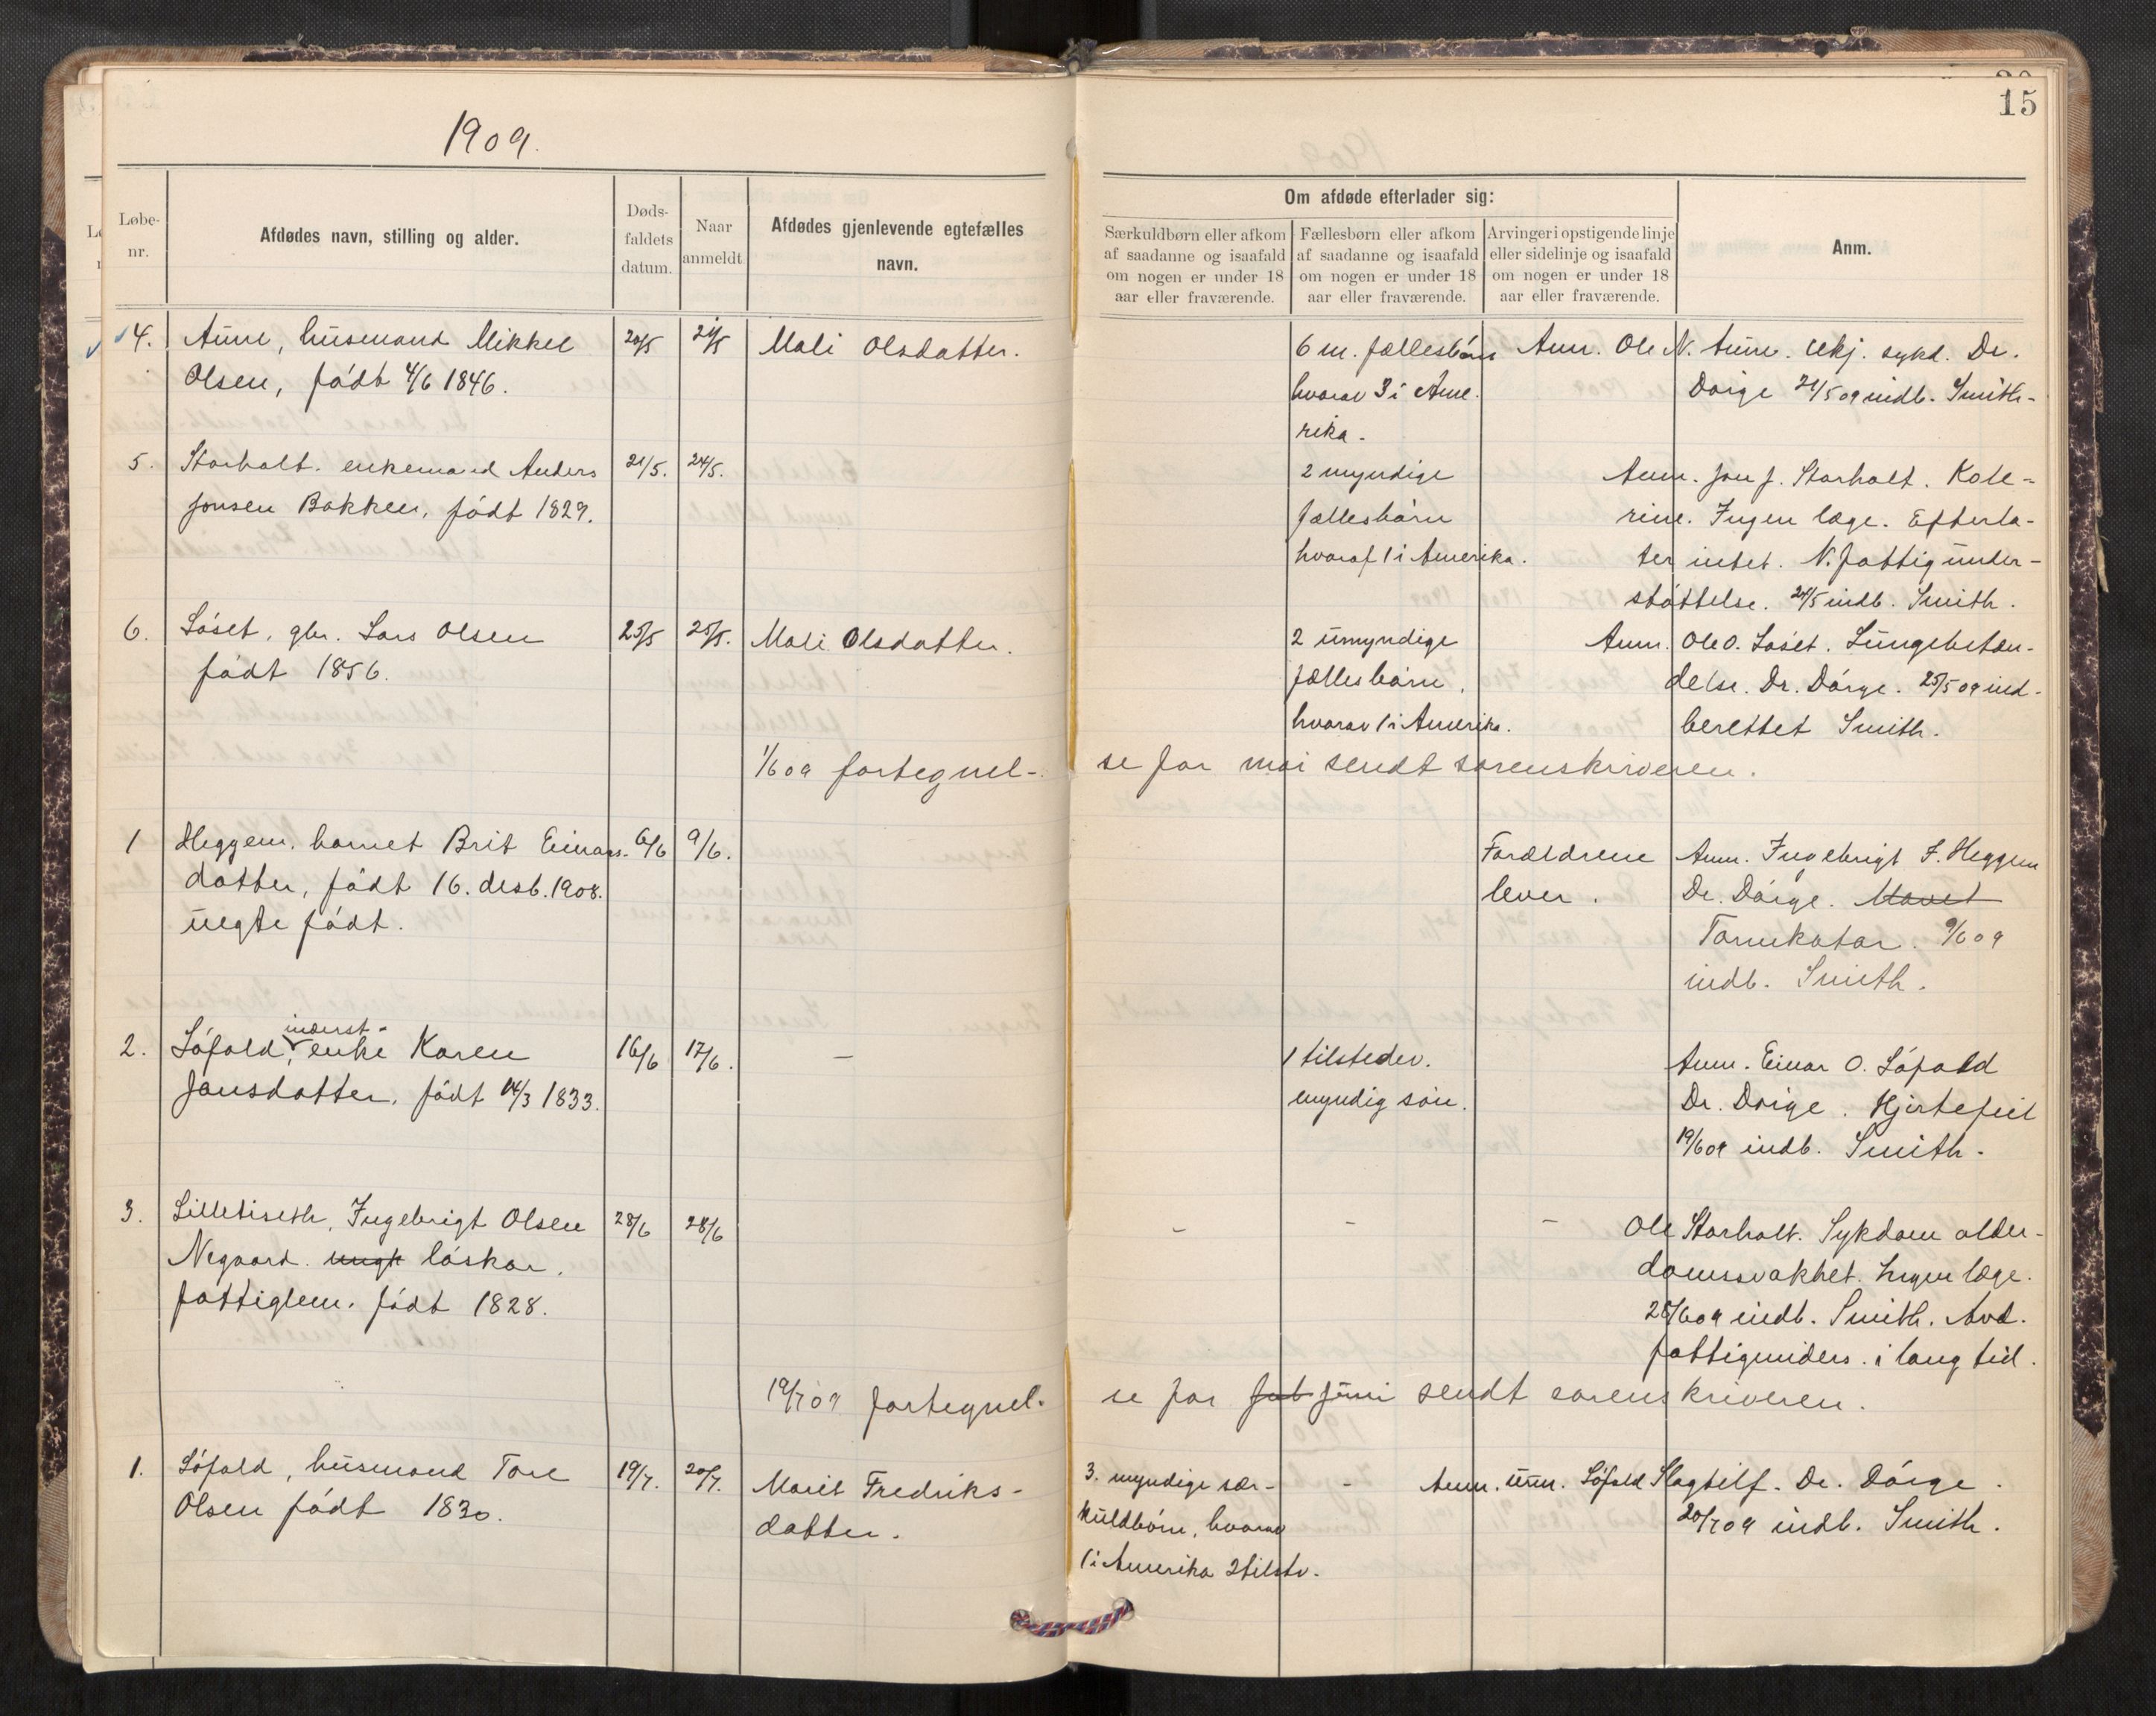 1909.
15
Løbe-nr.
Afdødes navn, stilling og alder.
Døds-faldets datum.
Naar anmeldt
Afdødes gjenlevende egtefælles navn.
Om afdøde efterlader sig:
Særkuldbørn eller afkom af saadanne og isaafald om nogen er under 18 aar eller fraværende.
Fællesbørn eller afkom af saadanne og isaafald om nogen er under 18 aar eller fraværende.
Arvinger i opstigende linje eller sidelinje og isaafald om nogen er under 18 aar eller fraværende.
Anm.
4. Aune, husmand Mikkel 20/5 21/5 Mali Olsdatter. 6 m. fællesbørn Anm. Ole N. Aune. Ukj. sykd. Dr.
Olsen, født 4/6 1846. hvorav 3 i Ame- Dørge 21/5 09 indb. Smith-
rika.
5. Storholt. enkemand Anders 21/5. 24/5. 2 myndige Anm. Jon J. Storholt. Kole-
Jonsen Bakken, født 1829. fællesbørn rine. Ingen læge. Efterla-
hvoraf 1 i Amerika. ter intet. N. fattigunder-
støttelse. 24/5 indb. Smith.
6. Løset, gbr. Lars Olsen 23/5 25/5. Mali Olsdatter. 2 umyndige Anm. Ole O. Løset. Lungebetæn-
født 1856. fællesbørn, delse. Dr. Dørge. 25/5 09 ind-
hvorav 1 i Amerika. berettet Smith.
1/6 09 fortegnel- se for mai sendt sorenskriveren.
1 Heggem. barnet Brit Einars- 6/6 9/6. Forældrene Anm. Ingebrigt F. Heggem
datter, født 16. desb. 1908. lever. Dr. Dørge. Mavet
uegte født. Tarmkatar. 9/6 09
indb. Smith.
2. Løfald, inderst- enke Karen 16/6 17/6. – 1 tilstedev. Anm. Einar O. Løfald
Jonsdatter, født 14/3 1833. myndig søn. Dr. Dørge. Hjertefeil
19/6 09 indb. Smith.
3. Lilletiseth, Ingebrigt Olsen 28/6 28/6 – – – Ole Storholt. Sykdom alder-
Negaard. ungk løskar. domssvakhet. Ingen læge.
fattiglem. født 1828. 28/6 09 indb. Smith. Avd.
fattigunders. i lang tid.
19/7 09 fortegnel- se for Jul juni sendt sorenskriveren.
1. Løfald, husmand Tore 19/7. 20/7. Marit Fredriks- 3. myndige sær- – Anm. Løfald Slagtilf. Dr. Dørge.
Olsen født 1830. datter. kuldbørn, hvorav 20/7 09 indb. Smith.
1 i Amerika 2 tilstv.